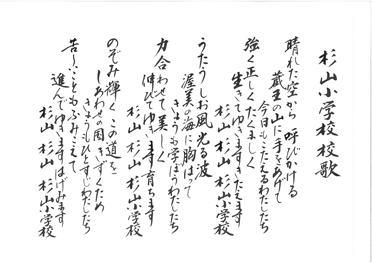 杉山小学校 校歌
晴れた空から 呼びかける
蔵王の山に手をあげて
今日もこたえるわたしたち
強く正しくたくましく
生きてゆきますきたえます
杉山 杉山 杉山小学校
うたうしお風 光る波
渥美の海に胸はって
きょうも学ぼうわたしたち
力合わせて美しく
伸びてゆきます育ちます
杉山 杉山 杉山小学校
のぞみ輝く この道を
しあわせの国 きずくため
きょうもひとすじわたしたち
苦しいこともふみこえて
進んでゆきますはげみます
杉山 杉山 杉山小学校